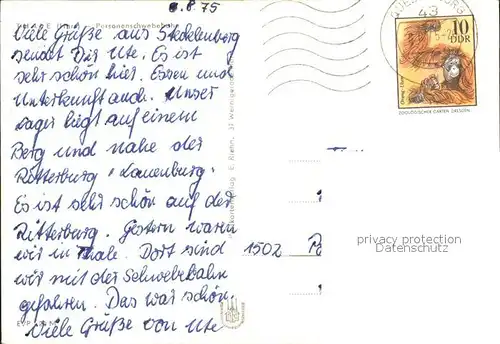 8.75
THALE Personenschwebebahn
Viele Grüße aus Stecklenburg
sendet Dir Ute. Es ist
sehr schön hier. Essen und
Unterkunft auch. Unser
Lager liegt auf einem
Berg und nahe der
Ritterburg "Lauenburg"
Es ist sehr schön auf der
Ritterburg. Gestern waren
wir in Thale. Dort sind
wir mit der Schwebebahn
gefahren. Das war schön.
Viele Grüße von Ute
EVP
Verlag E. Riehn, 37 Wernigerode
43
10
DDR
Orang-Utan
ZOOLOGISCHER GARTEN DRESDEN
1502
privacy protection
Datenschutz